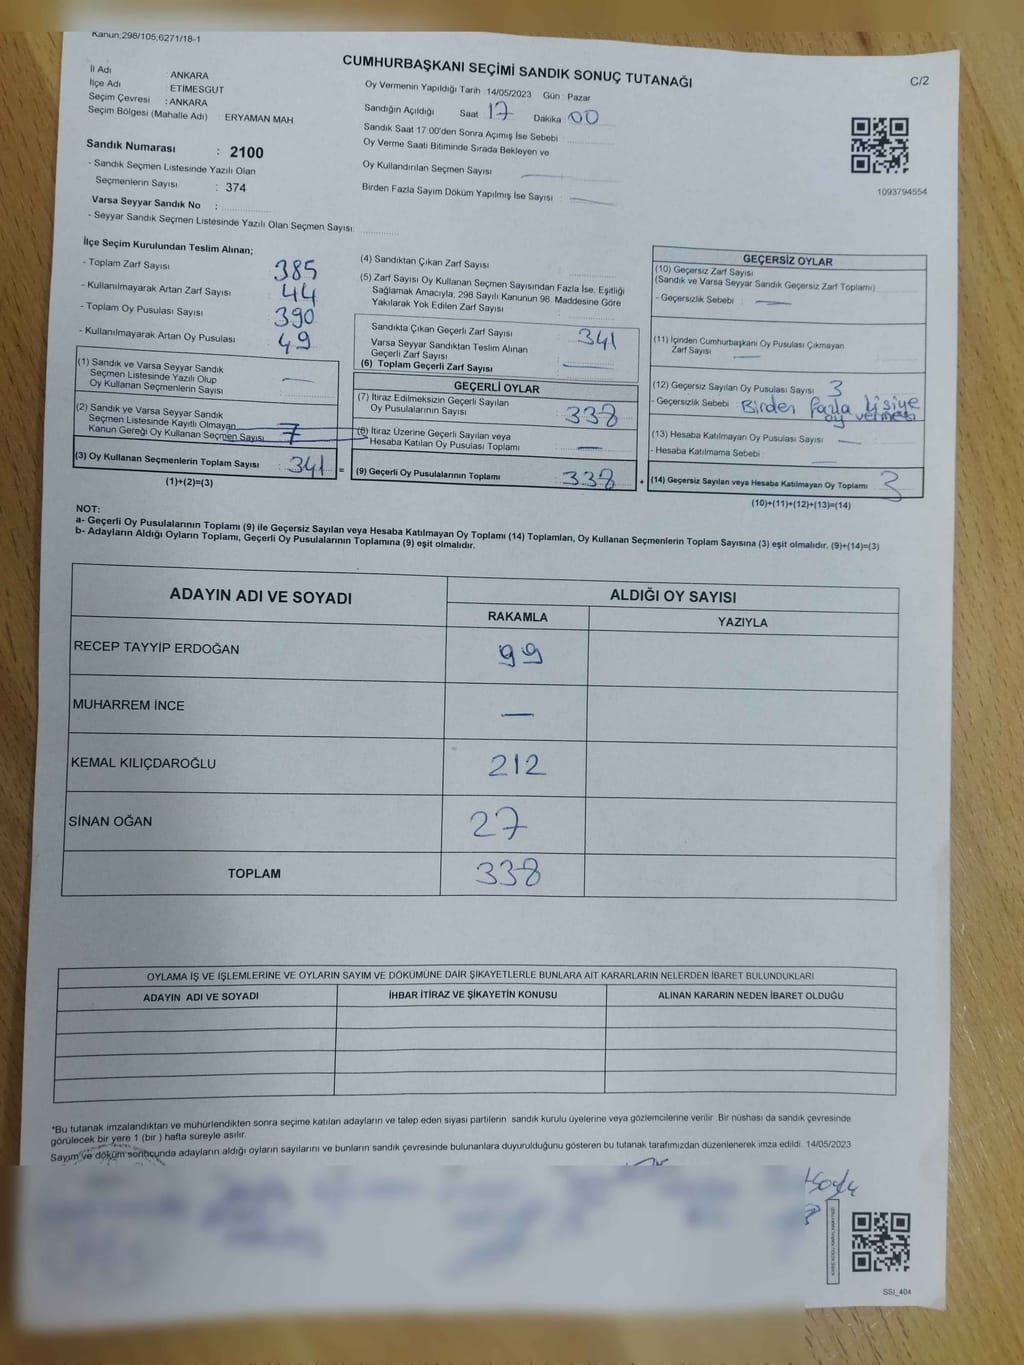 Kanun;298/105;6271/18-1
CUMHURBAŞKANI SEÇİMİ SANDIK SONUÇ TUTANAĞI
C/2
İl Adı : ANKARA
İlçe Adı : ETİMESGUT
Seçim Çevresi : ANKARA
Seçim Bölgesi (Mahalle Adı) : ERYAMAN MAH
Sandık Numarası : 2100
- Sandık Seçmen Listesinde Yazılı Olan
Seçmenlerin Sayısı : 374
Varsa Seyyar Sandık No :
- Seyyar Sandık Seçmen Listesinde Yazılı Olan Seçmen Sayısı:
Oy Vermenin Yapıldığı Tarih :14/05/2023 Gün : Pazar
Sandığın Açıldığı Saat 17 Dakika 00
Sandık Saat 17:00'den Sonra Açımış İse Sebebi :
Oy Verme Saati Bitiminde Sırada Bekleyen ve
Oy Kullandırılan Seçmen Sayısı —
Birden Fazla Sayım Döküm Yapılmış İse Sayısı : —
1093794554
İlçe Seçim Kurulundan Teslim Alınan;
- Toplam Zarf Sayısı 385
- Kullanılmayarak Artan Zarf Sayısı : 44
- Toplam Oy Pusulası Sayısı : 390
- Kullanılmayarak Artan Oy Pusulası : 49
(1) Sandık ve Varsa Seyyar Sandık
Seçmen Listesinde Yazılı Olup
Oy Kullanan Seçmenlerin Sayısı : —
(2) Sandık ve Varsa Seyyar Sandık
Seçmen Listesinde Kayıtlı Olmayan
Kanun Gereği Oy Kullanan Seçmen Sayısı : 7
(3) Oy Kullanan Seçmenlerin Toplam Sayısı : 341 =
(1)+(2)=(3)
(4) Sandıktan Çıkan Zarf Sayısı
(5) Zarf Sayısı Oy Kullanan Seçmen Sayısından Fazla İse, Eşitliği
Sağlamak Amacıyla; 298 Sayılı Kanunun 98. Maddesine Göre
Yakılarak Yok Edilen Zarf Sayısı :
Sandıkta Çıkan Geçerli Zarf Sayısı : 341
Varsa Seyyar Sandıktan Teslim Alınan
Geçerli Zarf Sayısı
(6) Toplam Geçerli Zarf Sayısı : —
GEÇERLİ OYLAR
(7) İtiraz Edilmeksizin Geçerli Sayılan
Oy Pusulalarının Sayısı : 338
(8) İtiraz Üzerine Geçerli Sayılan veya
Hesaba Katılan Oy Pusulası Toplamı : —
(9) Geçerli Oy Pusulalarının Toplamı : 338 +
GEÇERSİZ OYLAR
(10) Geçersiz Zarf Sayısı
(Sandık ve Varsa Seyyar Sandık Geçersiz Zarf Toplamı) :
- Geçersizlik Sebebi : —
(11) İçinden Cumhurbaşkanı Oy Pusulası Çıkmayan
Zarf Sayısı : —
(12) Geçersiz Sayılan Oy Pusulası Sayısı : 3
- Geçersizlik Sebebi : Birden fazla kişiye
oy vermesi
(13) Hesaba Katılmayan Oy Pusulası Sayısı : —
- Hesaba Katılmama Sebebi : —
(14) Geçersiz Sayılan veya Hesaba Katılmayan Oy Toplamı : 3
(10)+(11)+(12)+(13)=(14)
NOT:
a- Geçerli Oy Pusulalarının Toplamı (9) ile Geçersiz Sayılan veya Hesaba Katılmayan Oy Toplamı (14) Toplamları, Oy Kullanan Seçmenlerin Toplam Sayısına (3) eşit olmalıdır. (9)+(14)=(3)
b- Adayların Aldığı Oyların Toplamı, Geçerli Oy Pusulalarının Toplamına (9) eşit olmalıdır.
ADAYIN ADI VE SOYADI
ALDIĞI OY SAYISI
RAKAMLA YAZIYLA
RECEP TAYYİP ERDOĞAN 99
MUHARREM İNCE —
KEMAL KILIÇDAROĞLU 212
SİNAN OĞAN 27
TOPLAM 338
OYLAMA İŞ VE İŞLEMLERİNE VE OYLARIN SAYIM VE DÖKÜMÜNE DAİR ŞİKAYETLERLE BUNLARA AİT KARARLARIN NELERDEN İBARET BULUNDUKLARI
ADAYIN ADI VE SOYADI İHBAR İTİRAZ VE ŞİKAYETİN KONUSU ALINAN KARARIN NEDEN İBARET OLDUĞU
*Bu tutanak imzalandıktan ve mühürlendikten sonra seçime katılan adayların ve talep eden siyasi partilerin sandık kurulu üyelerine veya gözlemcilerine verilir. Bir nüshası da sandık çevresinde
görülecek bir yere 1 (bir ) hafta süreyle asılır.
Sayım ve döküm sonucunda adayların aldığı oyların sayılarını ve bunların sandık çevresinde bulunanlara duyurulduğunu gösteren bu tutanak tarafımızdan düzenlenerek imza edildi. 14/05/2023
SSI_404